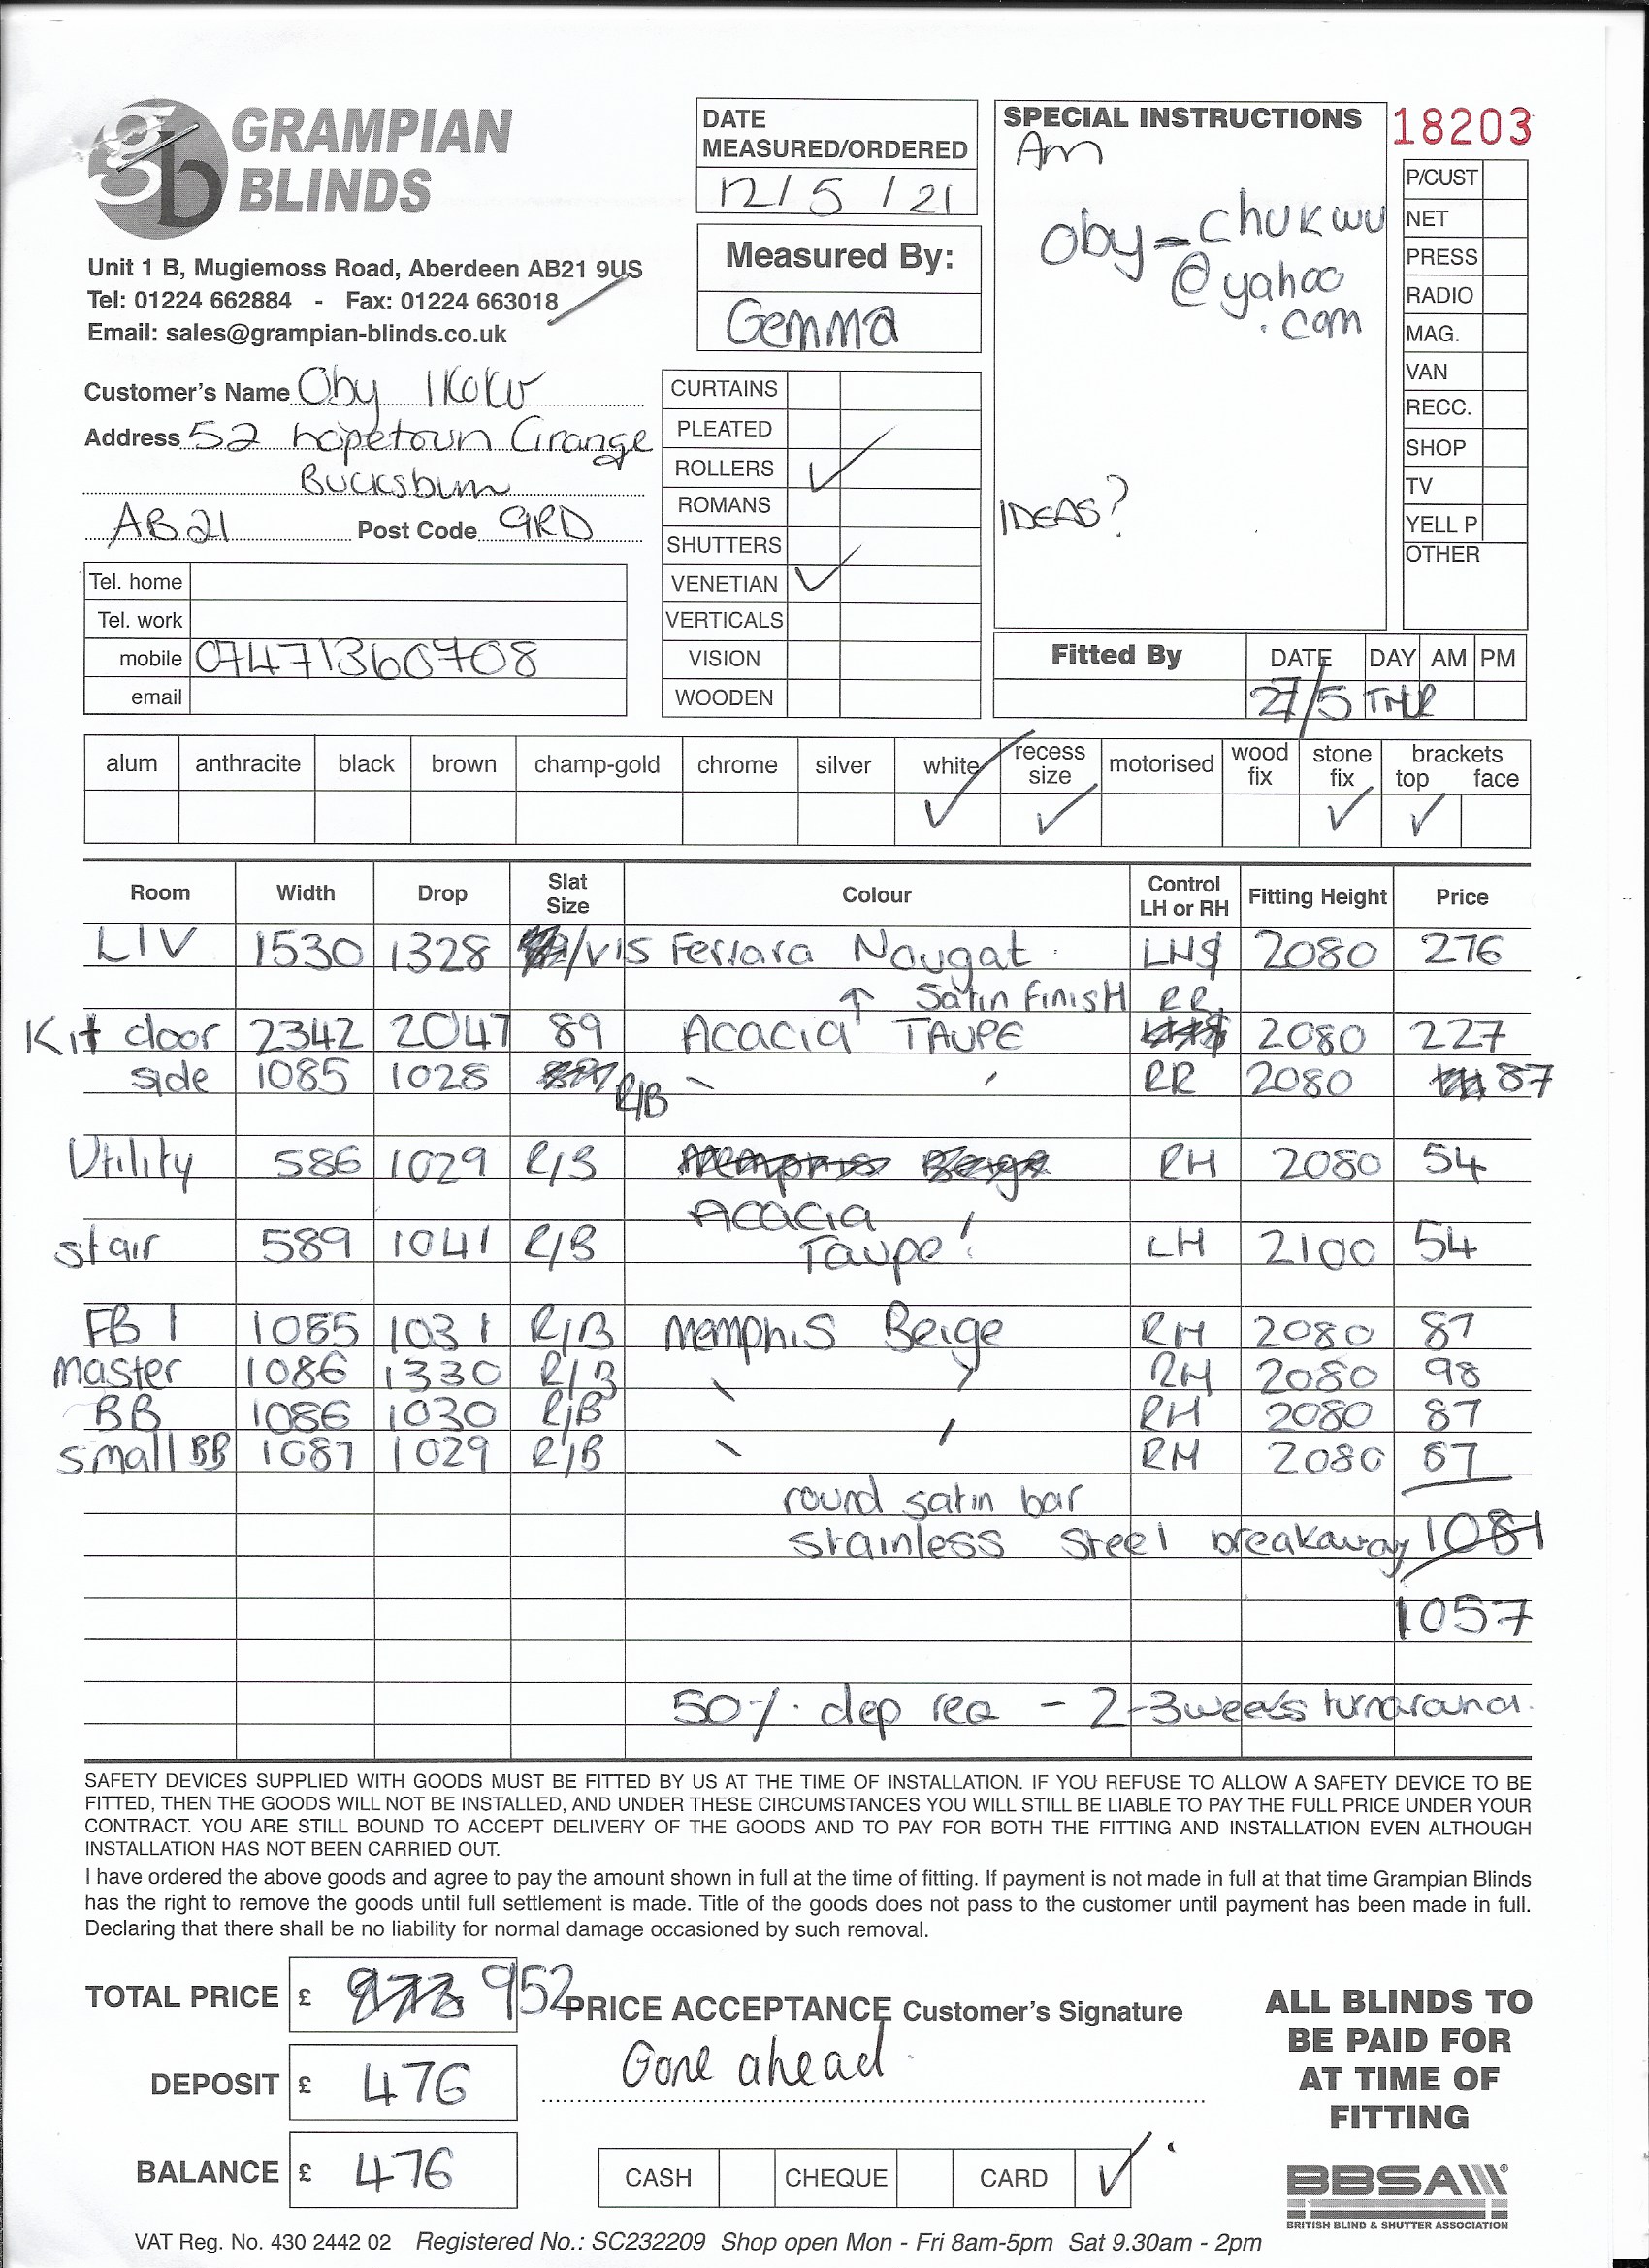 gb GRAMPIAN BLINDS
Unit 1 B, Mugiemoss Road, Aberdeen AB21 9US
Tel: 01224 662884 - Fax: 01224 663018
Email: sales@grampian-blinds.co.uk
DATE MEASURED/ORDERED
12/5/21
Measured By:
Gemma
SPECIAL INSTRUCTIONS
Am
Oby_chukwu
@yahoo
.com
IDEAS?
18203
P/CUST
NET
PRESS
RADIO
MAG.
VAN
RECC.
SHOP
TV
YELL P
OTHER
Customer's Name Oby
Address 52 hopetown Grange
Bucksburn
AB21 Post Code 9RD
Tel. home
Tel. work
mobile 07471360708
email
CURTAINS
PLEATED
ROLLERS ✓
ROMANS
SHUTTERS
VENETIAN ✓
VERTICALS
VISION
WOODEN
Fitted By DATE DAY AM PM
27/5 THUR
alum anthracite black brown champ-gold chrome silver white recess size motorised wood fix stone fix brackets top face
✓ ✓ ✓ ✓
Room Width Drop Slat Size Colour Control LH or RH Fitting Height Price
LIV 1530 1328 /VIS Ferrara Nougat LHS 2080 276
↑ Satin Finish RR
Kit door 2342 2047 89 Acacia TAUPE 2080 227
side 1085 1028 R/B " " RR 2080 87
Utility 586 1029 R/B Memphis Beige RH 2080 54
Acacia
stair 589 1041 R/B Taupe! LH 2100 54
FB 1 1085 1031 R/B Memphis Beige RH 2080 87
Master 1086 1330 R/B " " RH 2080 98
BB 1086 1030 R/B " RH 2080 87
small BB 1087 1029 R/B " RH 2080 87
round satin bar
stainless steel breakaway 1081
1057
50% dep req - 2-3weeks turnaround.
SAFETY DEVICES SUPPLIED WITH GOODS MUST BE FITTED BY US AT THE TIME OF INSTALLATION. IF YOU REFUSE TO ALLOW A SAFETY DEVICE TO BE
FITTED, THEN THE GOODS WILL NOT BE INSTALLED, AND UNDER THESE CIRCUMSTANCES YOU WILL STILL BE LIABLE TO PAY THE FULL PRICE UNDER YOUR
CONTRACT. YOU ARE STILL BOUND TO ACCEPT DELIVERY OF THE GOODS AND TO PAY FOR BOTH THE FITTING AND INSTALLATION EVEN ALTHOUGH
INSTALLATION HAS NOT BEEN CARRIED OUT.
I have ordered the above goods and agree to pay the amount shown in full at the time of fitting. If payment is not made in full at that time Grampian Blinds
has the right to remove the goods until full settlement is made. Title of the goods does not pass to the customer until payment has been made in full.
Declaring that there shall be no liability for normal damage occasioned by such removal.
TOTAL PRICE £ 952
PRICE ACCEPTANCE Customer's Signature
Gone ahead.
DEPOSIT £ 476
BALANCE £ 476
CASH CHEQUE CARD ✓
ALL BLINDS TO
BE PAID FOR
AT TIME OF
FITTING
BBSA
BRITISH BLIND & SHUTTER ASSOCIATION
VAT Reg. No. 430 2442 02 Registered No.: SC232209 Shop open Mon - Fri 8am-5pm Sat 9.30am - 2pm